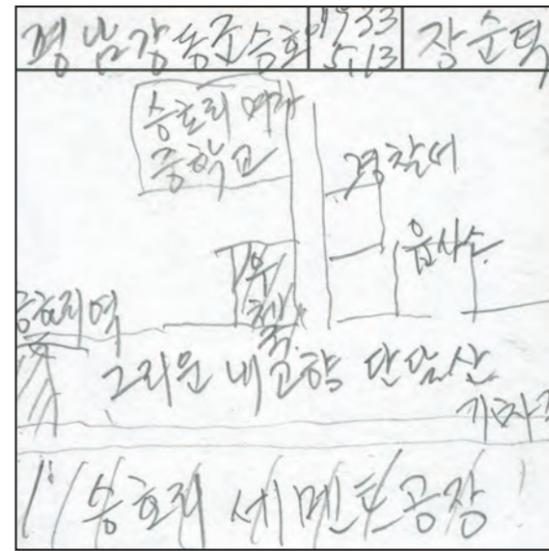 평남강동군승호 1933 5.13 장순덕
승호리 여자
중학교
경찰서
읍사무소
우체국
승호리역
그리운 내고향 만달산
기차길
승호리 세멘트공장